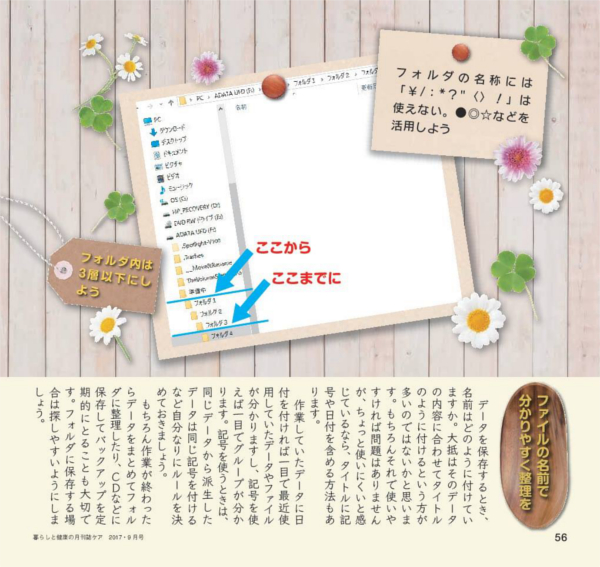 フォルダの名称には
「¥/:*?"〈〉!」は
使えない。●◎☆などを
活用しよう
PC › ADATA UFD (F:) › フォルダ1 › フォルダ2 ›
名前
PC
ダウンロード
デスクトップ
ドキュメント
ピクチャ
ビデオ
ミュージック
OS (C:)
HP_RECOVERY (D:)
DVD RW ドライブ (E:)
ADATA UFD (F:)
.Spotlight-V100
.Trashes
準備中
フォルダ1
フォルダ2
フォルダ3
フォルダ4
ここから
ここまでに
フォルダ内は
3層以下にし
よう
ファイルの名前で
分かりやすく整理を
データを保存するとき、
名前はどのように付けてい
ますか。大抵はそのデータ
の内容に合わせてタイトル
のように付けるという方が
多いのではないかと思いま
す。もちろんそれで使いや
すければ問題はありません
が、ちょっと使いにくいと感
じているなら、タイトルに記
号や日付を含める方法もあ
ります。
作業していたデータに日
付を付ければ一目で最近使
用していたデータやファイル
が分かりますし、記号を使
えば一目でグループが分か
ります。記号を使うときは、
同じデータから派生した
データは同じ記号を付ける
など自分なりにルールを決
めておきましょう。
もちろん作業が終わった
らデータをまとめてフォル
ダに整理したり、CDなどに
保存してバックアップを定
期的にとることも大切で
す。フォルダに保存する場
合は探しやすいようにしま
しょう。
暮らしと健康の月刊誌ケア 2017・9月号
56